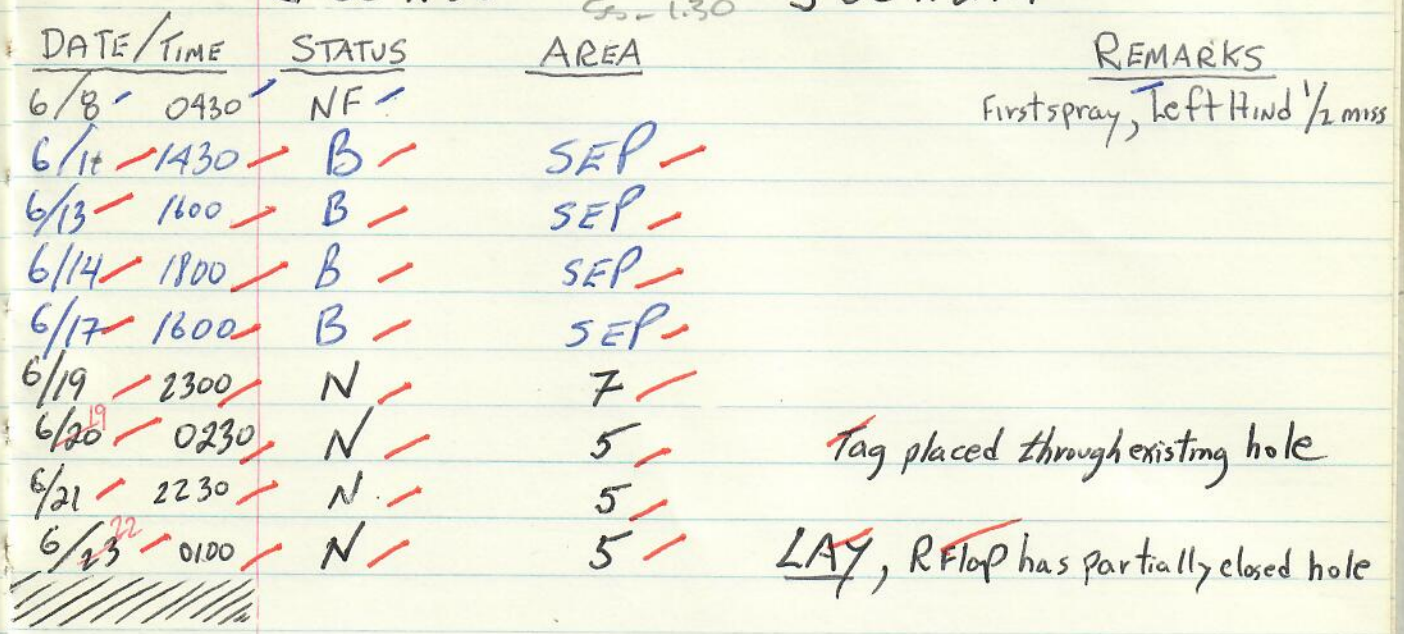 DATE/TIME STATUS AREA REMARKS
6/8 0430 NF First spray, Left Hind 1/2 miss
6/11 1430 B SEP
6/13 1600 B SEP
6/14 1800 B SEP
6/17 1600 B SEP
6/19 2300 N 7
6/20 19 0230 N 5 Tag placed through existing hole
6/21 2230 N 5
6/23 22 0100 N 5 LAY, R Flap has partially closed hole